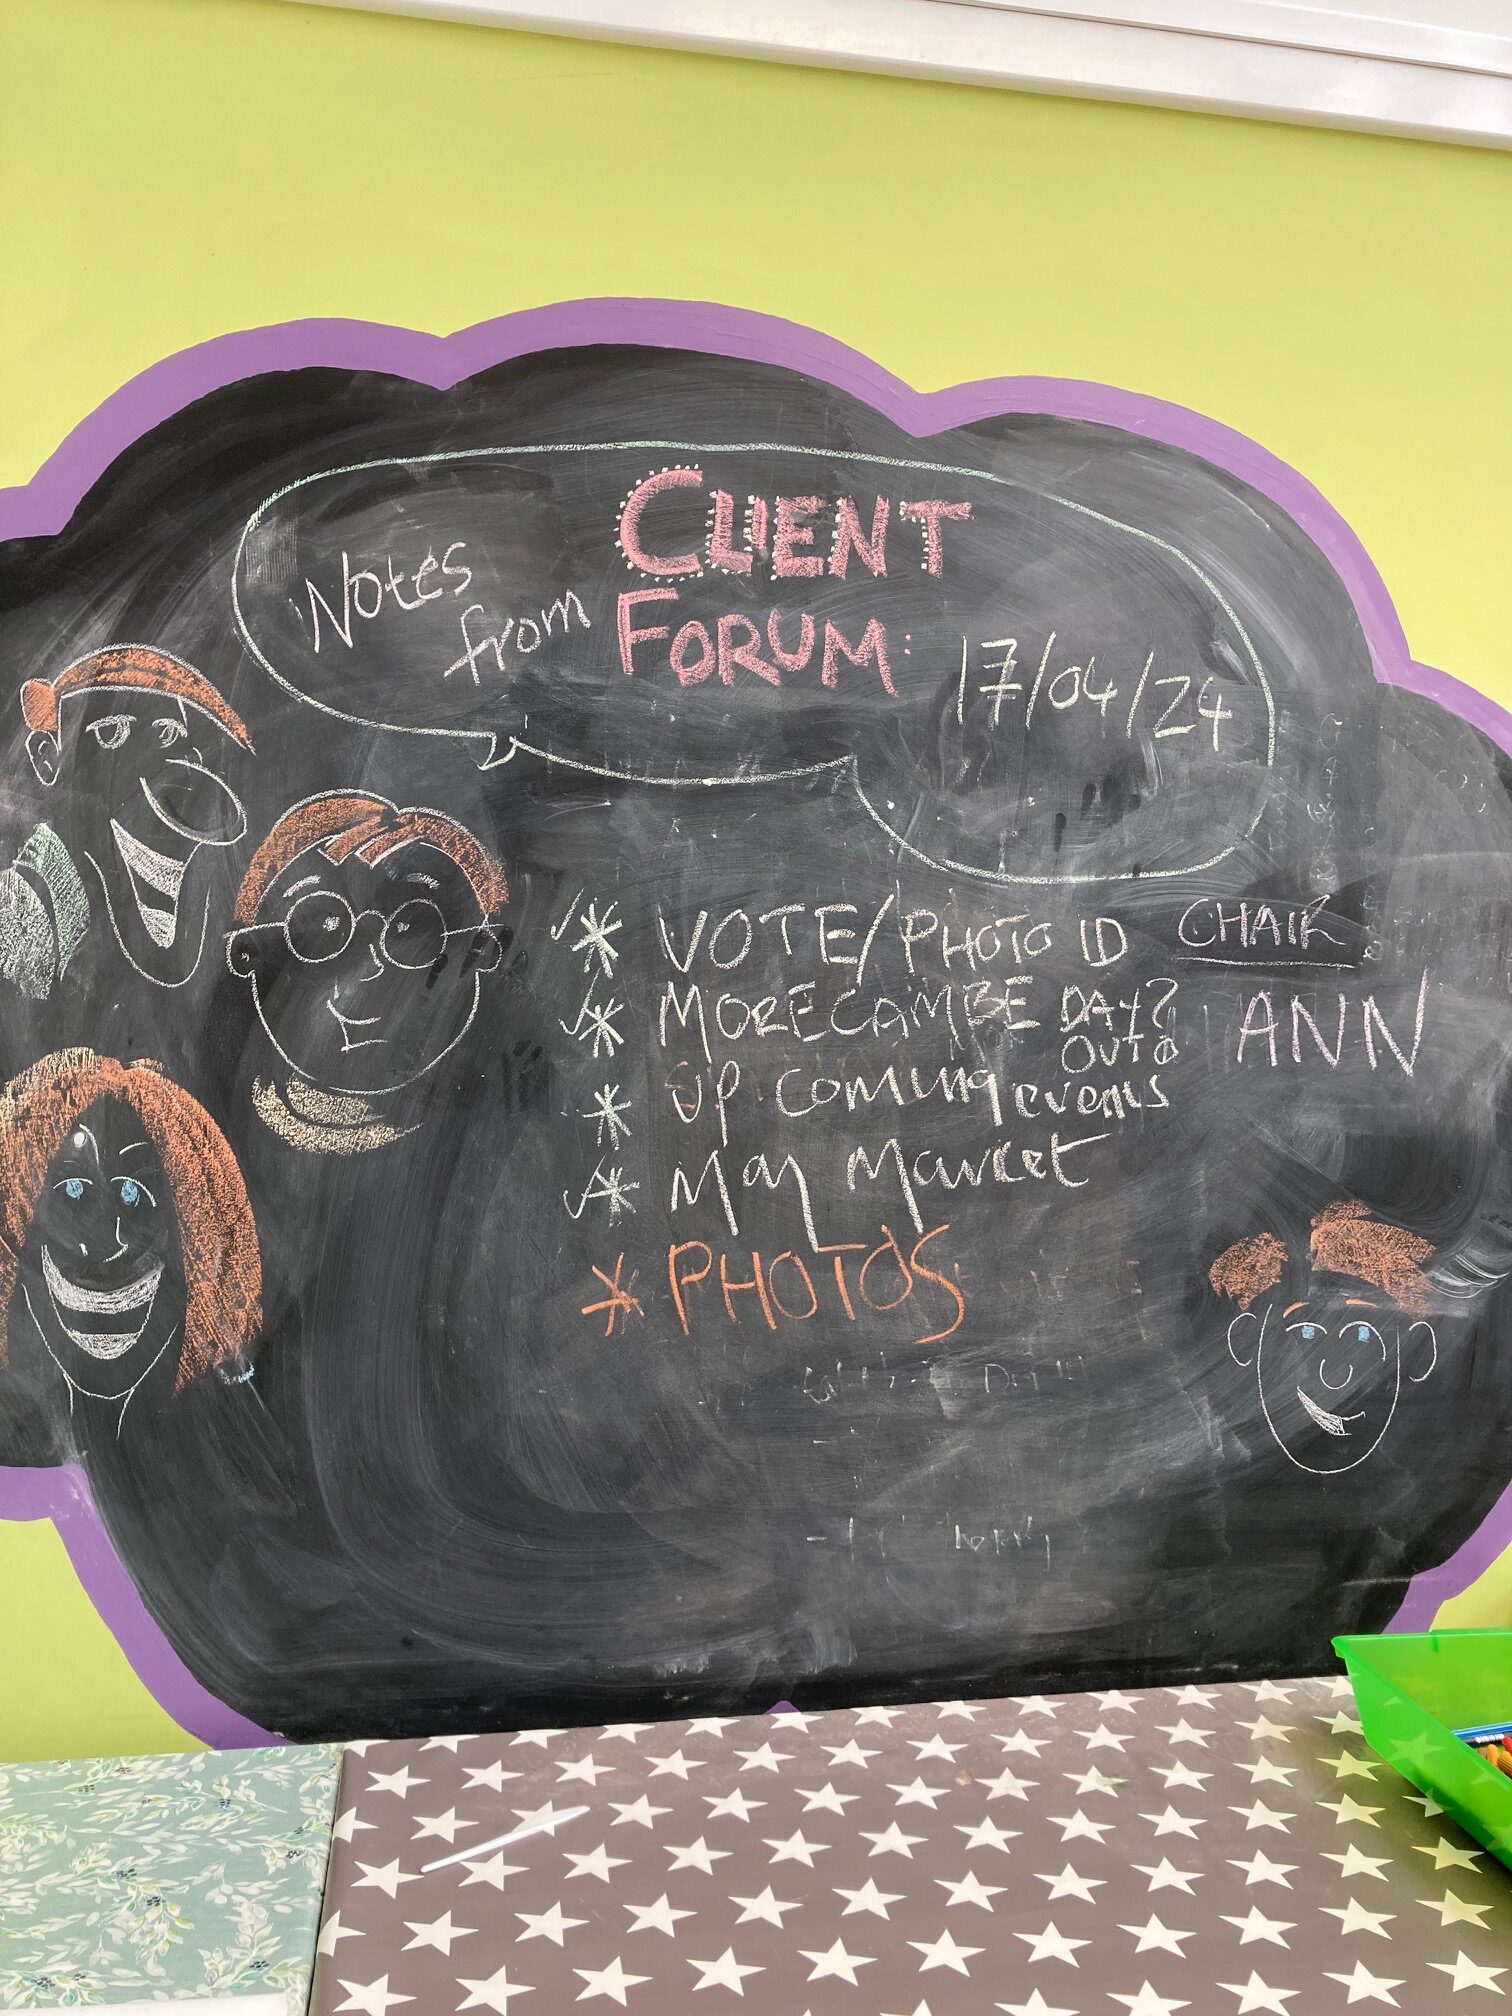 Notes from CLIENT
FORUM: 17/04/24
* VOTE/PHOTO ID
* MORECAMBE DAY? OUT
* UP coming events
* May Market
* PHOTOS
CHAIR
ANN